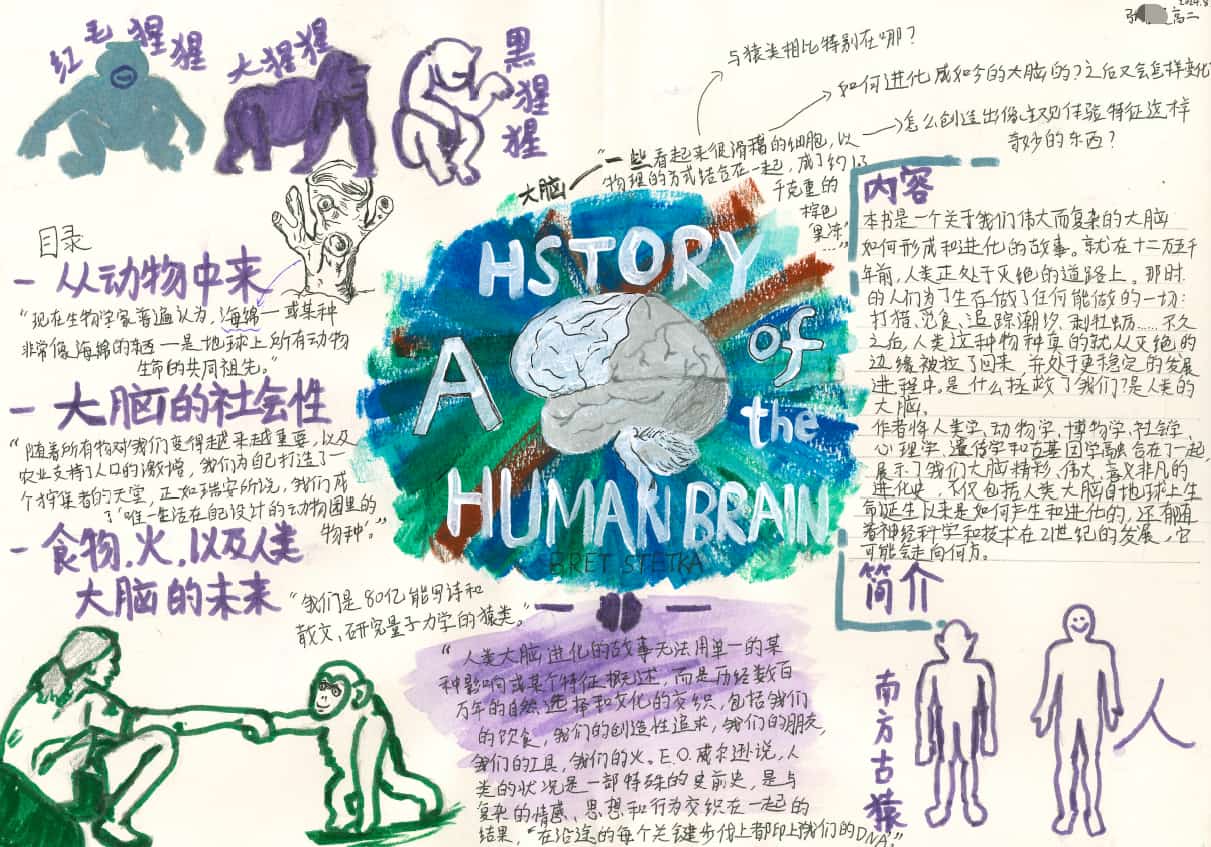 2024.8
高二
红毛猩猩
大猩猩
黑猩猩
与猿类相比特别在哪？
如何进化成如今的大脑的？之后又会怎样变化
怎么创造出像主观体验特征这样
奇妙的东西？
大脑
“一些看起来很滑稽的细胞，以
物理的方式结合在一起，成了约1.3
千克重的
棕色
“果冻”
……”
目录
一 从动物中来
“现在生物学家普遍认为，海绵一或某种
非常像海绵的东西一是地球上所有动物
生命的共同祖先。”
一 大脑的社会性
“随着所有物对我们变得越来越重要，以及
农业支持了人口的激增，我们为自己打造了一
个狩集者的天堂，正如瑞安所说，我们成
了‘唯一生活在自己设计的动物园里的
物种’。”
一 食物.火.以及人类
大脑的未来
“我们是80亿能写诗和
散文、研究量子力学的猿类。”
A
HSTORY
of
the
HUMAN BRAIN
BRET STETKA
“人类大脑进化的故事无法用单一的某
种影响或某个特征概述，而是历经数百
万年的自然选择和文化的交织，包括我们
的饮食，我们的创造性追求，我们的朋友，
我们的工具，我们的火。E.O.威尔逊说，人
类的状况是一部特殊的史前史，是与
复杂的情感、思想和行为交织在一起的
结果，“在沿途的每个关键步伐上都印上我们的DNA”。”
内容
本书是一个关于我们伟大而复杂的大脑
如何形成和进化的故事。就在十二万五千
年前，人类正处于灭绝的道路上。那时
的人们为了生存做了任何能做的一切：
打猎、觅食、追踪潮汐、剥牡蛎……不久
之后，人类这种物种真的就从灭绝的
边缘被拉了回来，并处于更稳定的发展
进程中。是什么拯救了我们？是人类的
大脑。
作者将人类学、动物学、博物学、社会学、
心理学、遗传学和古基因学融合在了一起，
展示了我们大脑精彩、伟大、意义非凡的
进化史，不仅包括人类大脑自地球上生
命诞生以来是如何产生和进化的，还有随
着神经科学和技术在21世纪的发展，它
可能会走向何方。
简介
南方古猿
人